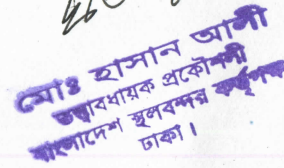 মোঃ হাসান আলী
তত্ত্বাবধায়ক প্রকৌশলী
বাংলাদেশ স্থলবন্দর কর্তৃপক্ষ
ঢাকা।